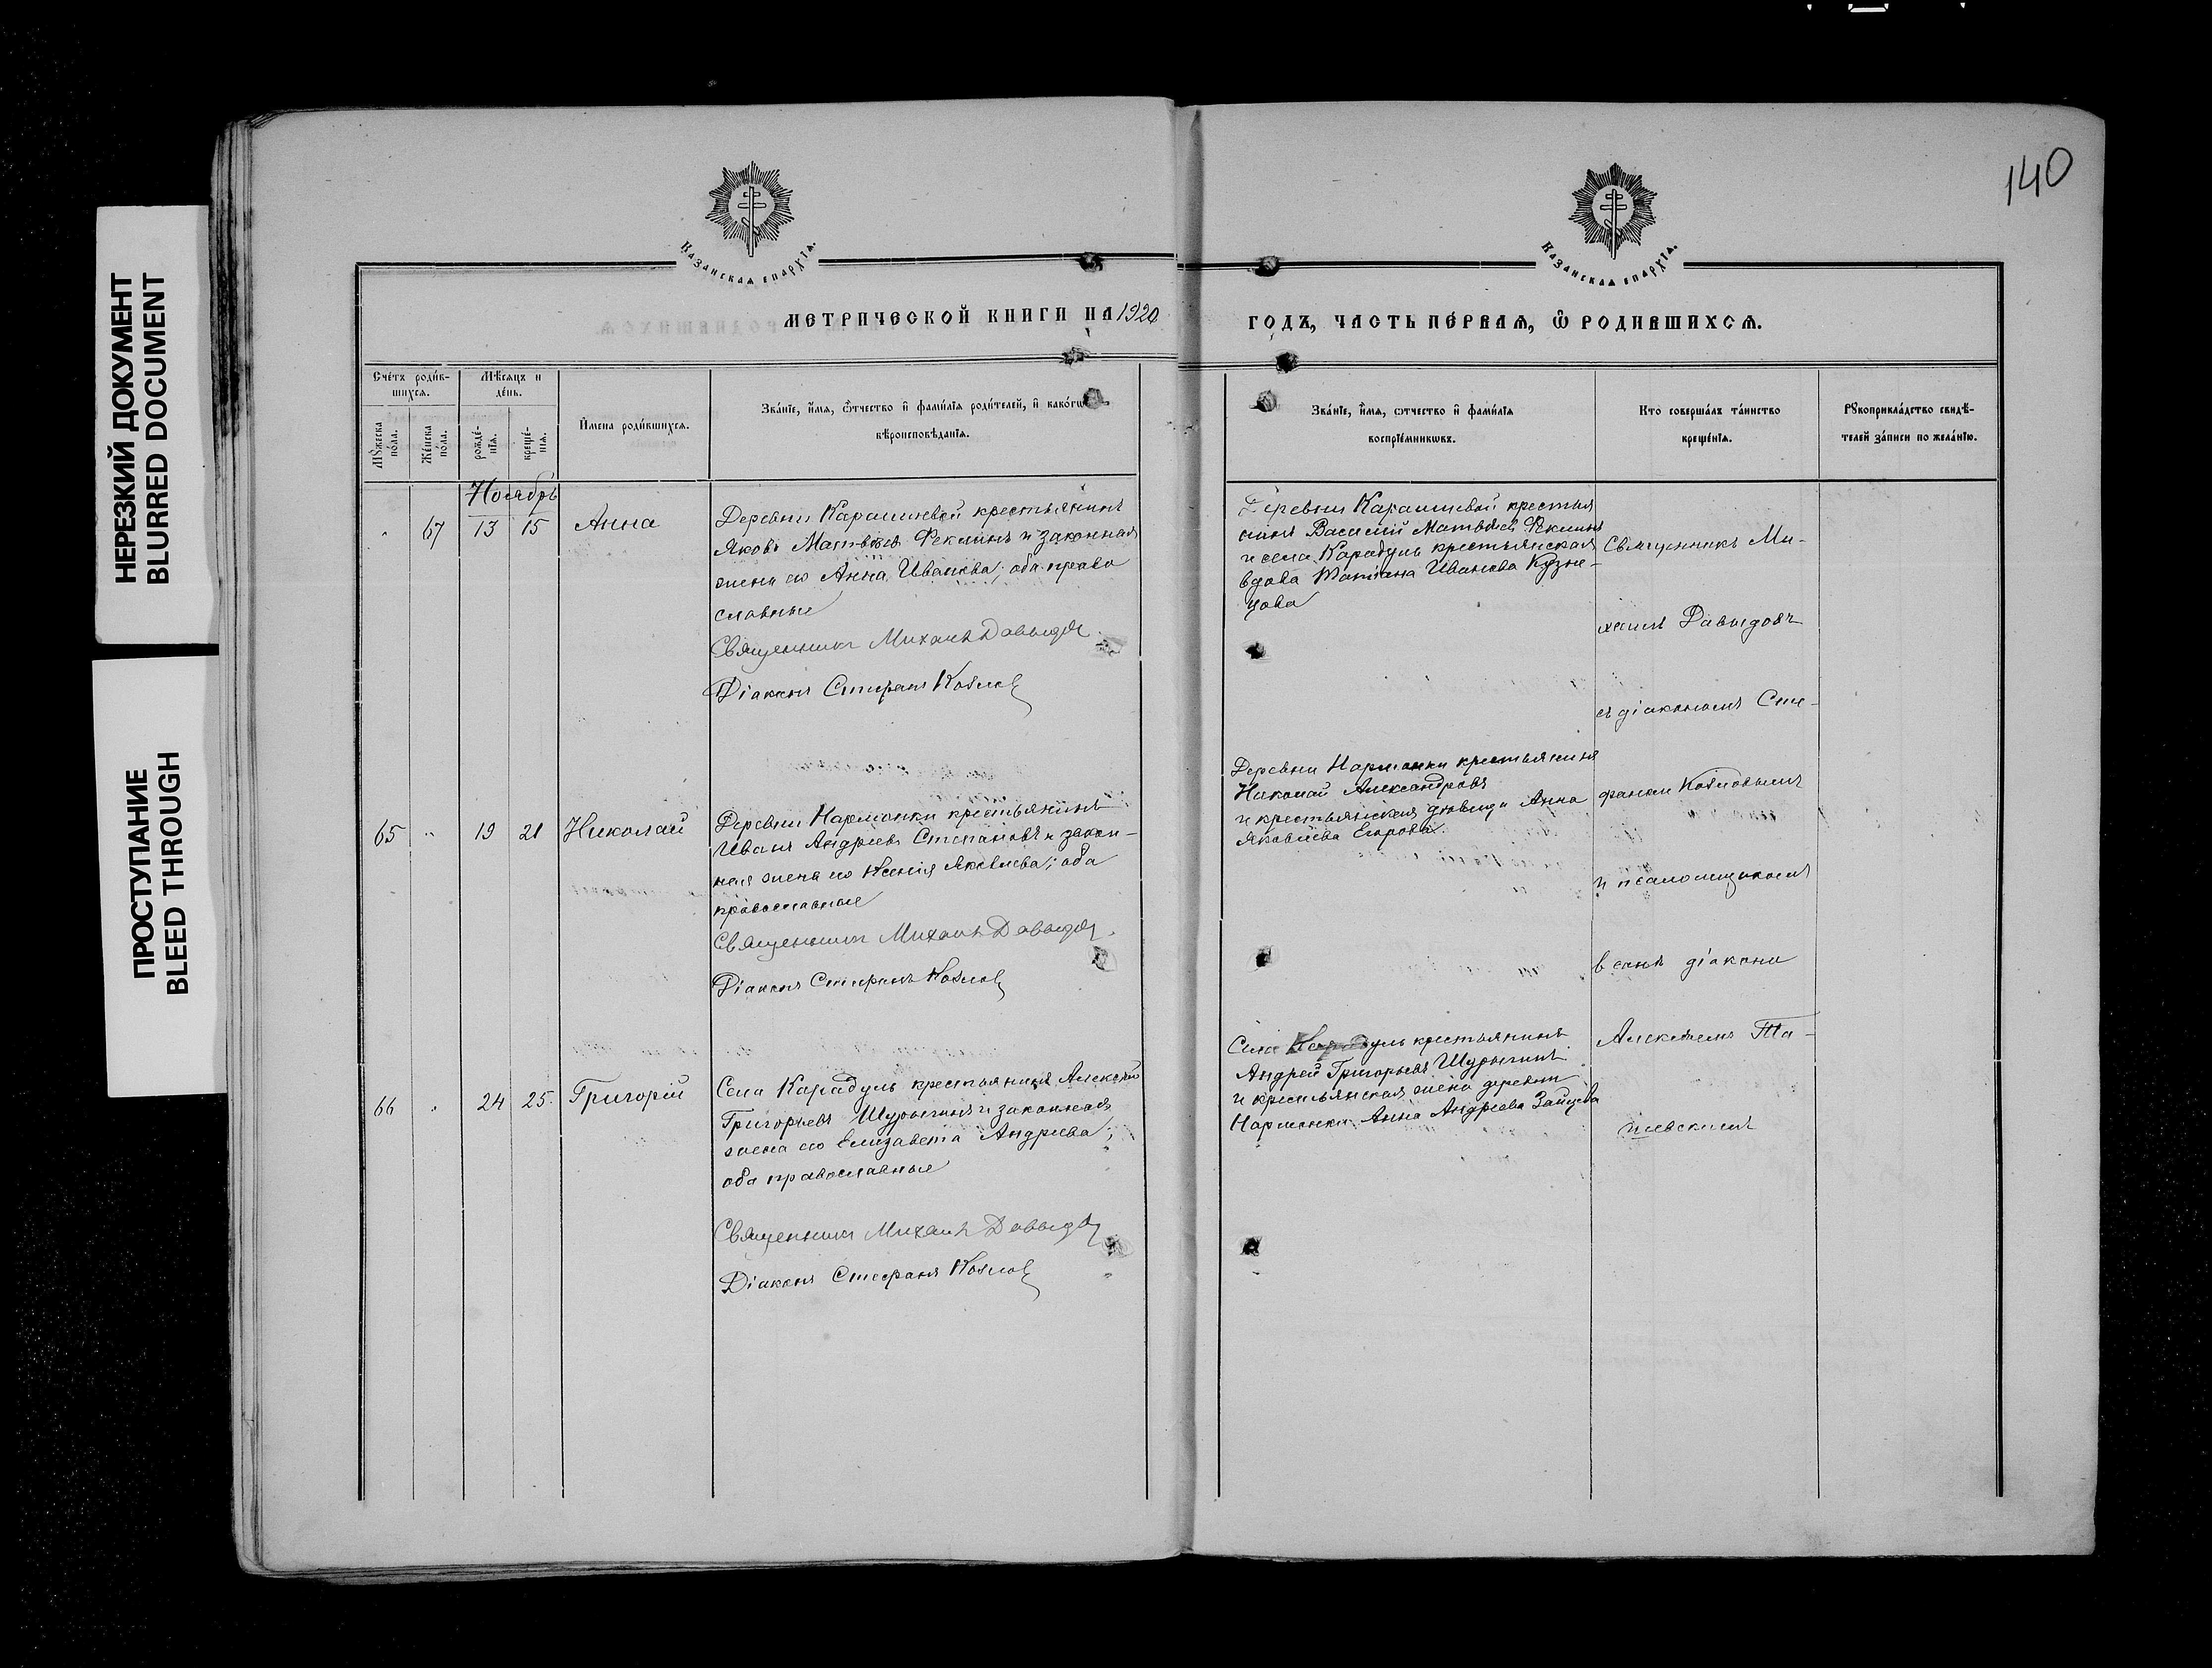 140
НЕРЕЗКИЙ ДОКУМЕНТ
BLURRED DOCUMENT
ПРОСТУПАНИЕ
BLEED THROUGH
Казанская епархїѧ.
Казанская епархїѧ.
МЕТРИЧЕСКОЙ КНИГИ НА 1920
ГОДЪ, ЧАСТЬ ПЕ́РВАѦ, Ѽ РОДИВШИХСѦ.
Сче́тъ роди́в-
шихсѧ.
Мѣ́сѧцъ и
де́нь.
Мꙋ́жеска
по́ла.
Же́нска
по́ла.
рожде́-
нїѧ.
креще́-
нїѧ.
И҆́мена роди́вшихсѧ.
Зва́нїе, и҆́мѧ, ѻ҆́тчество и҆ фами́лїѧ роди́телей, и҆ како́гѡ
вѣроисповѣ́данїѧ.
Зва́нїе, и҆́мѧ, ѻ҆́тчество и҆ фами́лїѧ
воспрїе́мникѡвъ.
Кто̀ соверша́лъ та́инство
креще́нїѧ.
Рꙋкоприкла́дство свидѣ́-
телей за́писи по жела́нїю.
Ноябрь
67 13 15 Анна
Деревни Карашевой крестьянинъ
Яковъ Матвѣевъ Феклинъ и законная
жена его Анна Иванова; оба право
славные
Священникъ Михаилъ Давыдов
Діаконъ Стефанъ Козлов
Деревни Карашевой крестья
нинъ Василій Матвѣев Феклинъ
и села Карадуль крестьянская
вдова Татіана Иванова Кузне-
цова
Священникъ Ми-
хаилъ Давыдовъ
съ діакономъ Сте-
фаном Козловымъ
и псаломщикомъ
в санѣ діакона
Алексѣемъ
65 " 19 21 Николай
Деревни Нармонки крестьянинъ
Иванъ Андреевъ Степановъ и закон-
ная жена его Ксенія Яковлева; оба
православные
Священникъ Михаилъ Давыдов
Діаконъ Стефанъ Козлов
Деревни Нармонки крестьянинъ
Николай Александровъ
и крестьянская дѣвица Анна
Яковлева Егорова
66 " 24 25 Григорій
Села Карадуль крестьянинъ Алексѣй
Григорьевъ Шурыгинъ и законная
жена его Елизавета Андреева;
оба православные
Священникъ Михаилъ Давыдов
Діаконъ Стефанъ Козлов
Села Карадуль крестьянинъ
Андрей Григорьевъ Шурыгинъ
и крестьянская жена деревни
Нармонки Анна Андреева Зайцева